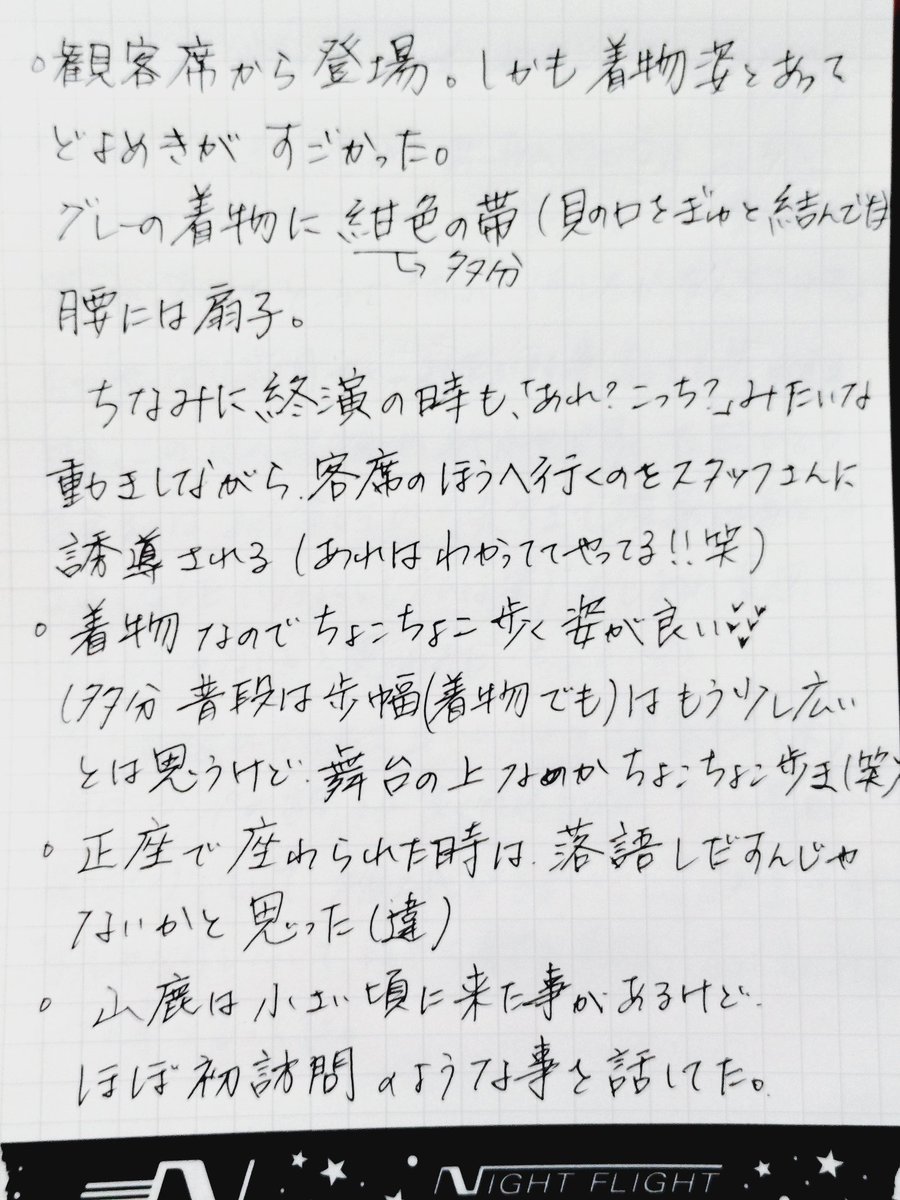 ○観客席から登場。しかも着物姿とあって
どよめきがすごかった。
グレーの着物に紺色の帯(貝の口をぎゅと結んで
↳多分
腰には扇子。
ちなみに終演の時も、「あれ?こっち?」みたいな
動きしながら、客席のほうへ行くのをスタッフさんに
誘導される(あれはわかっててやってる!!笑)
○着物なのでちょこちょこ歩く姿が良い♥♥♥
(多分普段は歩幅(着物でも)はもう少し広い
とは思うけど、舞台の上なめかちょこちょこ歩き(笑)
○正座で座わられた時は、落語しだすんじゃ
ないかと思った(違)
○山鹿は小さい頃に来た事があるけど、
ほぼ初訪問のような事を話してた。
NIGHT FLIGHT